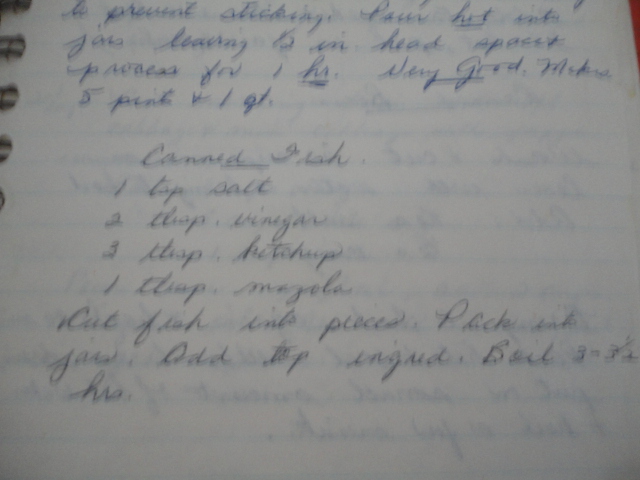 to prevent sticking. Pour hot into
jars leaving ½ in head space &
process for 1 hr. Very Good. Makes
5 pints & 1 qt.
Canned Fish.
1 tsp salt
2 tbsp. vinegar
3 tbsp. ketchup
1 tbsp. mazola
Cut fish into pieces. Pack into
jars. Add top ingred. Boil 3-3½
hrs.